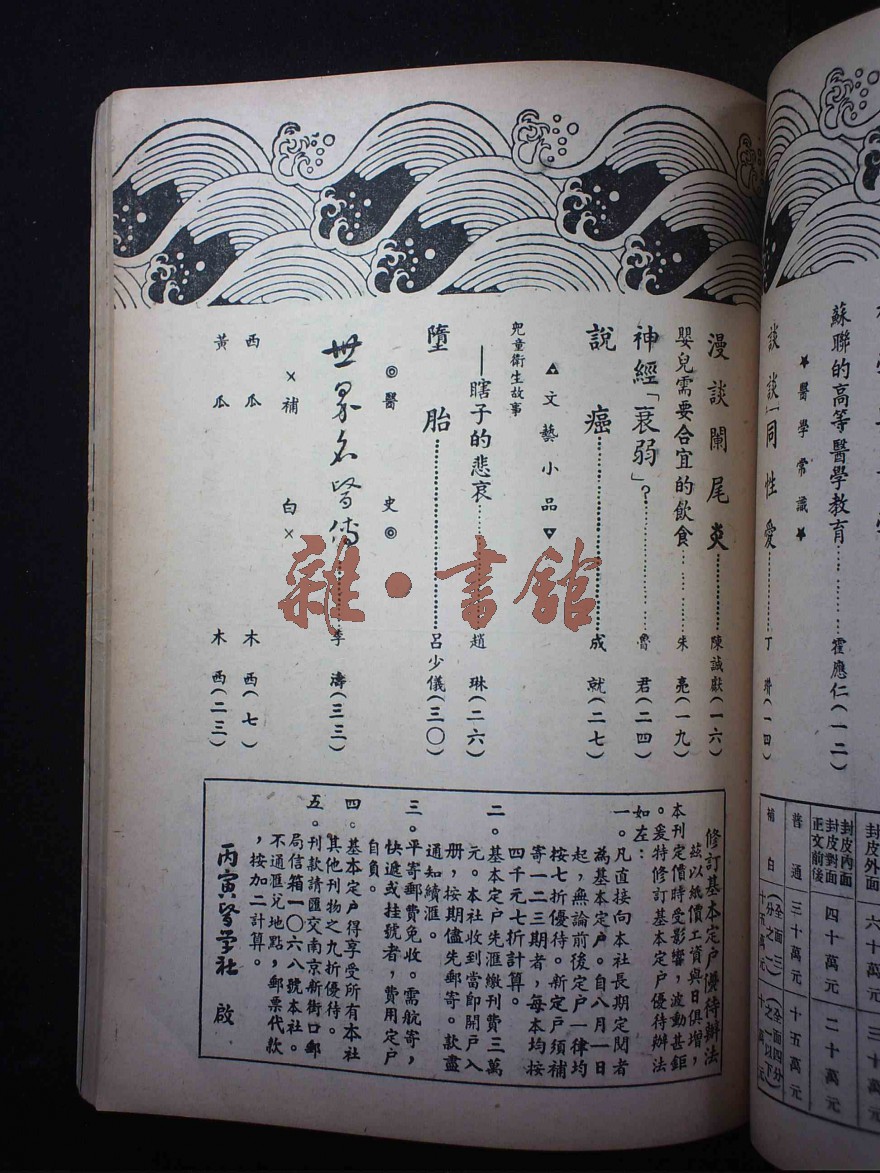 蘇聯的高等醫學教育…………霍應仁(一二)
★醫學常識★
談談「同性愛…………丁 (一四)
漫談闌尾炎…………陳誠獻(一六)
嬰兒需要合宜的飲食…………朱亮(一九)
神經「衰弱」?…………魯君(二四)
說癌…………成就(二七)
▲文藝小品▼
兒童衛生故事
——瞎子的悲哀…………趙琳(二六)
墮胎…………呂少儀(三〇)
◎醫史◎
世界名醫傳…………李濤(三三)
×補白×
西瓜 木西(七)
黃瓜 木西(二三)
雜·書館
封皮外面 六十萬元 三十萬元
封皮內面
封皮對面
正文前後
四十萬元 二十萬元
普通 三十萬元 十五萬元
補白
修訂基本定户優待辦法
茲以紙價工資與日俱增,
本刊定價時受影響,波動甚鉅
。爰特修訂基本定户優待辦法
如左:
一。凡直接向本社長期定閱者
為基本定户。自八月一日
起,無論前後定户一律均
按七折優待。新定户須補
寄一二三期者,每本均按
四千元七折計算。
二。基本定户先滙繳刊費三萬
元。本社收到當即開户入
册,按期儘先郵寄。款盡
通知續滙。
三。平寄郵費免收。需航寄,
快遞或挂號者,費用定户
自負。
四。基本定户得享受所有本社
其他刊物之九折優待。
五。刊款請匯交南京新街口郵
局信箱一〇六八號本社。
不通滙兌地點,郵票代款
,按加二計算。
丙寅醫學社 啟